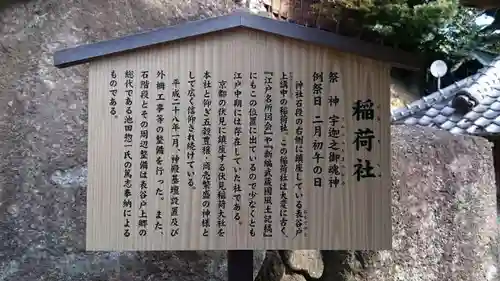 稲荷社
祭神 宇迦之御魂神
例祭日 二月初午の日
神社石段の右側に鎮座している表谷戸
上講中の稲荷社。この稲荷社は大変に古く、
『江戸名所図会』や『新編武蔵国風土記稿』
にもこの位置に出ているので少なくとも
江戸中期には存在していた社である。
京都の伏見に鎮座する伏見稲荷大社を
本社と仰ぎ五穀豊穣・商売繁盛の神様と
して広く信仰され続けている。
平成二十八年一月、神殿基壇設置及び
外構工事等の整備を行った。また、
石階段とその周辺整備は表谷戸上郷の
総代である池田惣一氏の篤志奉納による
ものである。